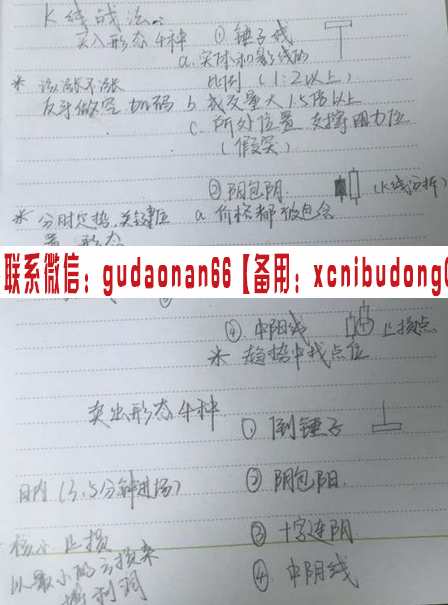 K线战法
买入形态4种 ①锤子线
a.实体和影线的
比例(1:2以上)
* 该涨不涨
反手做空 加码
b 成交量大1.5倍以上
c.所处位置 支撑阻力位
(假突)
②阴包阴 (K线分析)
* 分时定势,关键位
看 形态
a 价格都被包含
联系微信:gudaonan66【备用:xcnibudong
④ 中阳线 止损点
* 趋势中找点位
卖出形态4种
① 倒锤子
日内(3.5分钟进场)
② 阴包阳
③ 十字连阴
核心 止损
以最小的亏损来
增利润
④ 中阴线